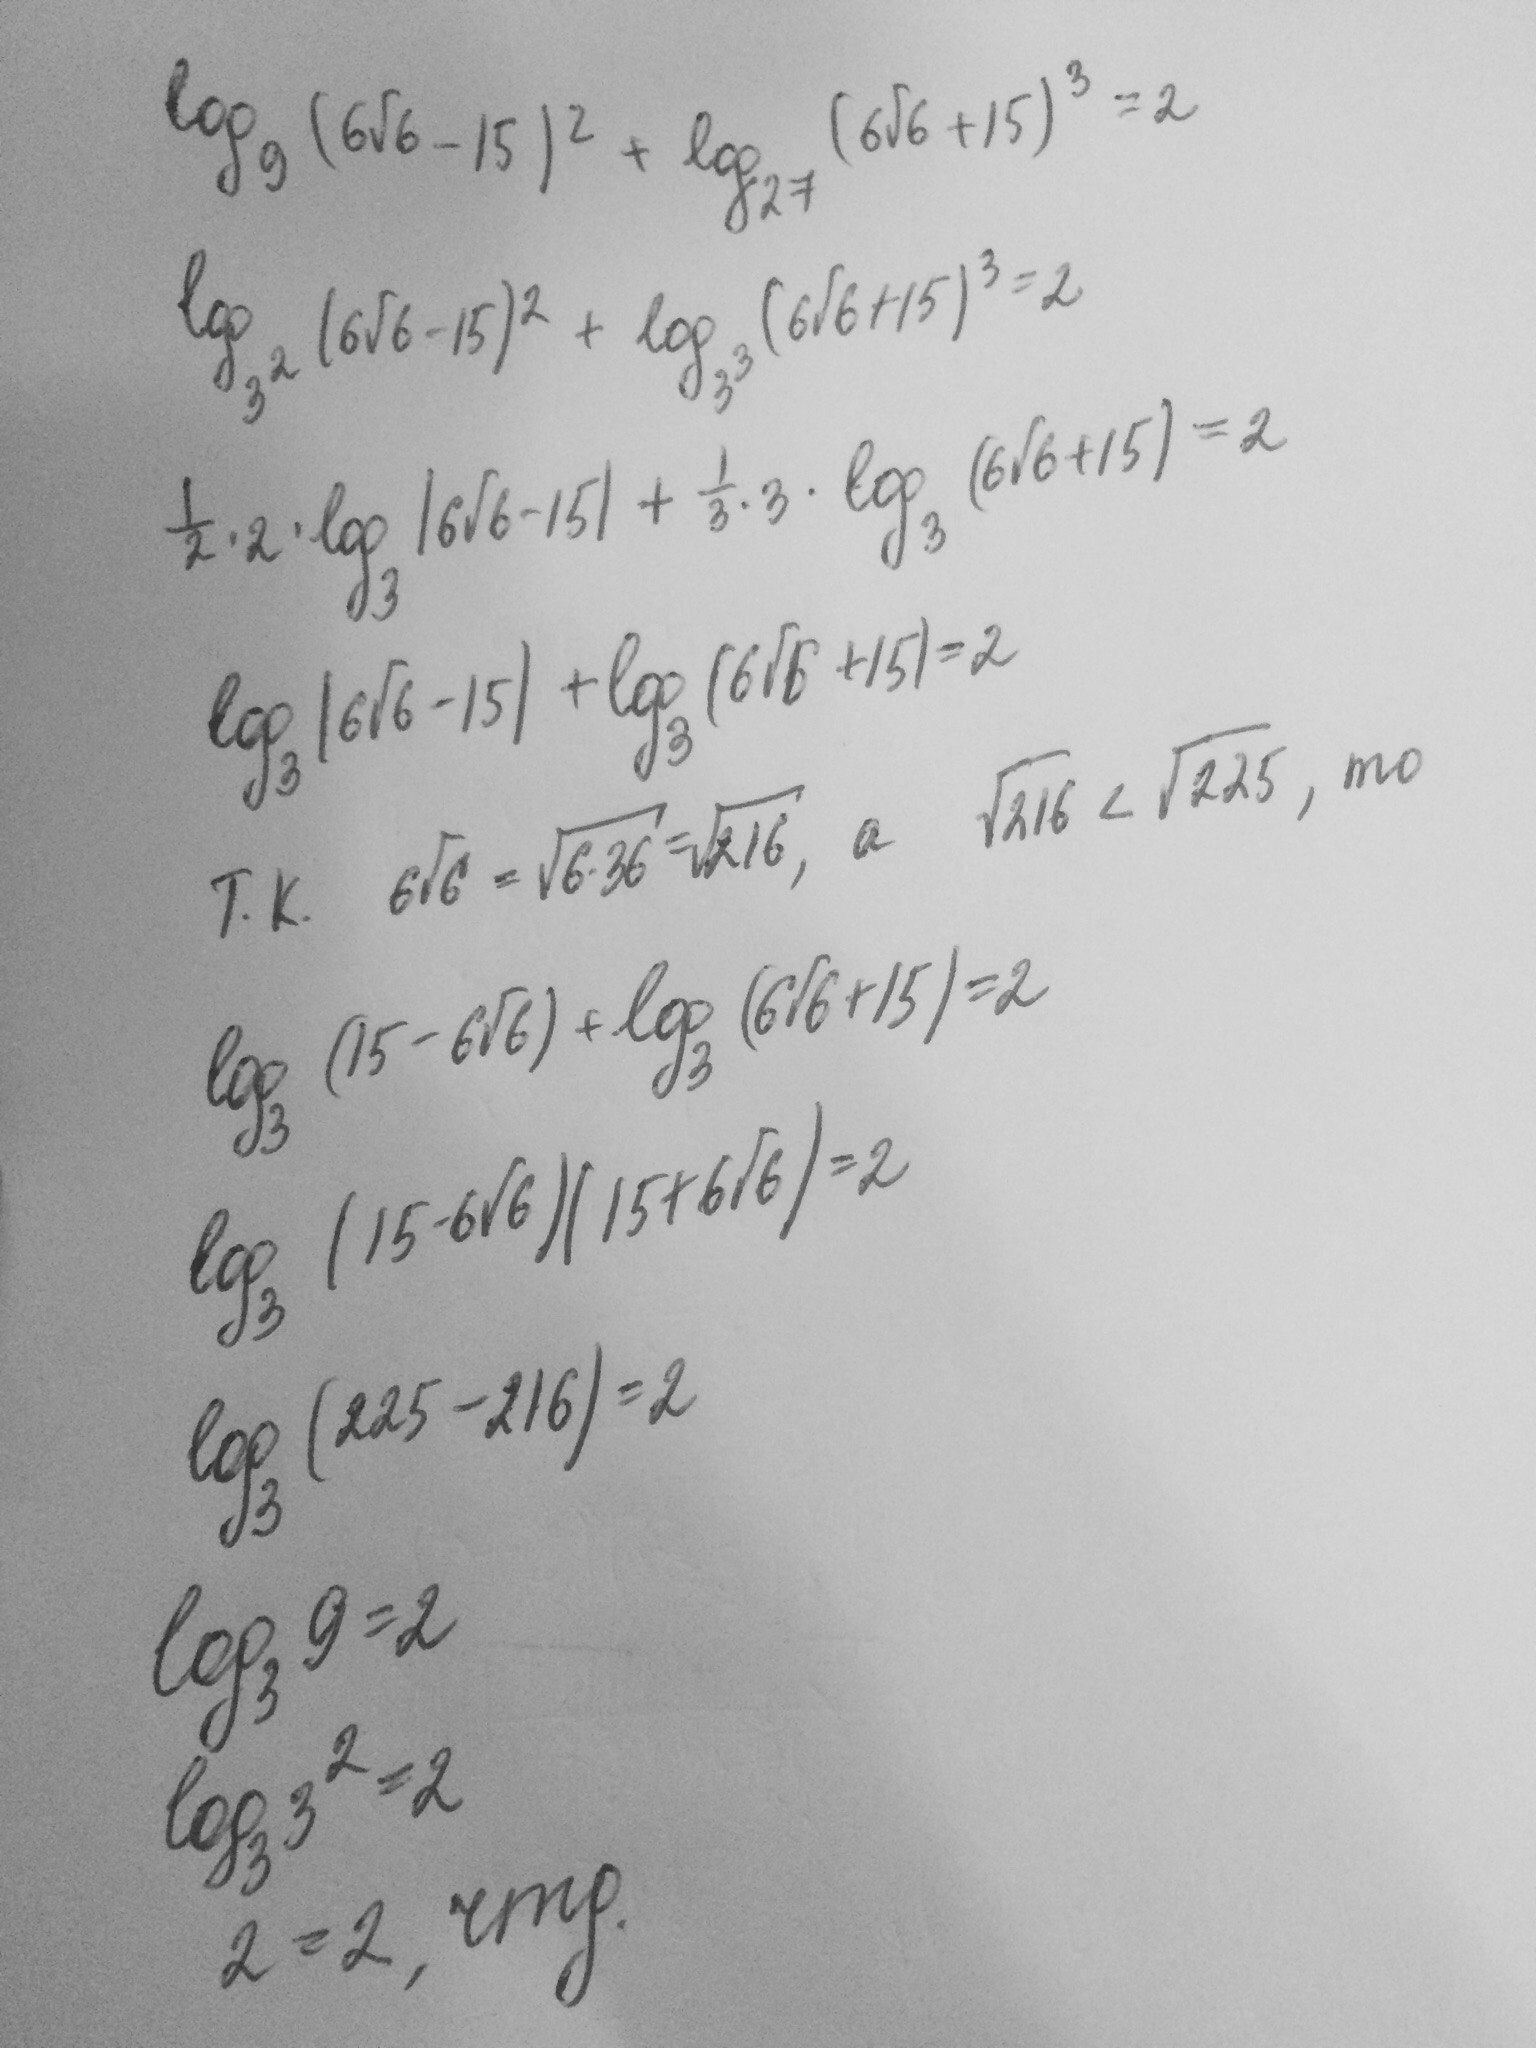 log₉(6√6-15)² + log₂₇(6√6+15)³ = 2
log₃²(6√6-15)² + log₃³(6√6+15)³ = 2
1/2·2·log₃|6√6-15| + 1/3·3·log₃(6√6+15) = 2
log₃|6√6-15| + log₃(6√6+15) = 2
Т.К. 6√6 = √6·36 = √216, а √216 < √225, то
log₃(15-6√6) + log₃(6√6+15) = 2
log₃(15-6√6)(15+6√6) = 2
log₃(225-216) = 2
log₃9 = 2
log₃3² = 2
2 = 2, чтд.